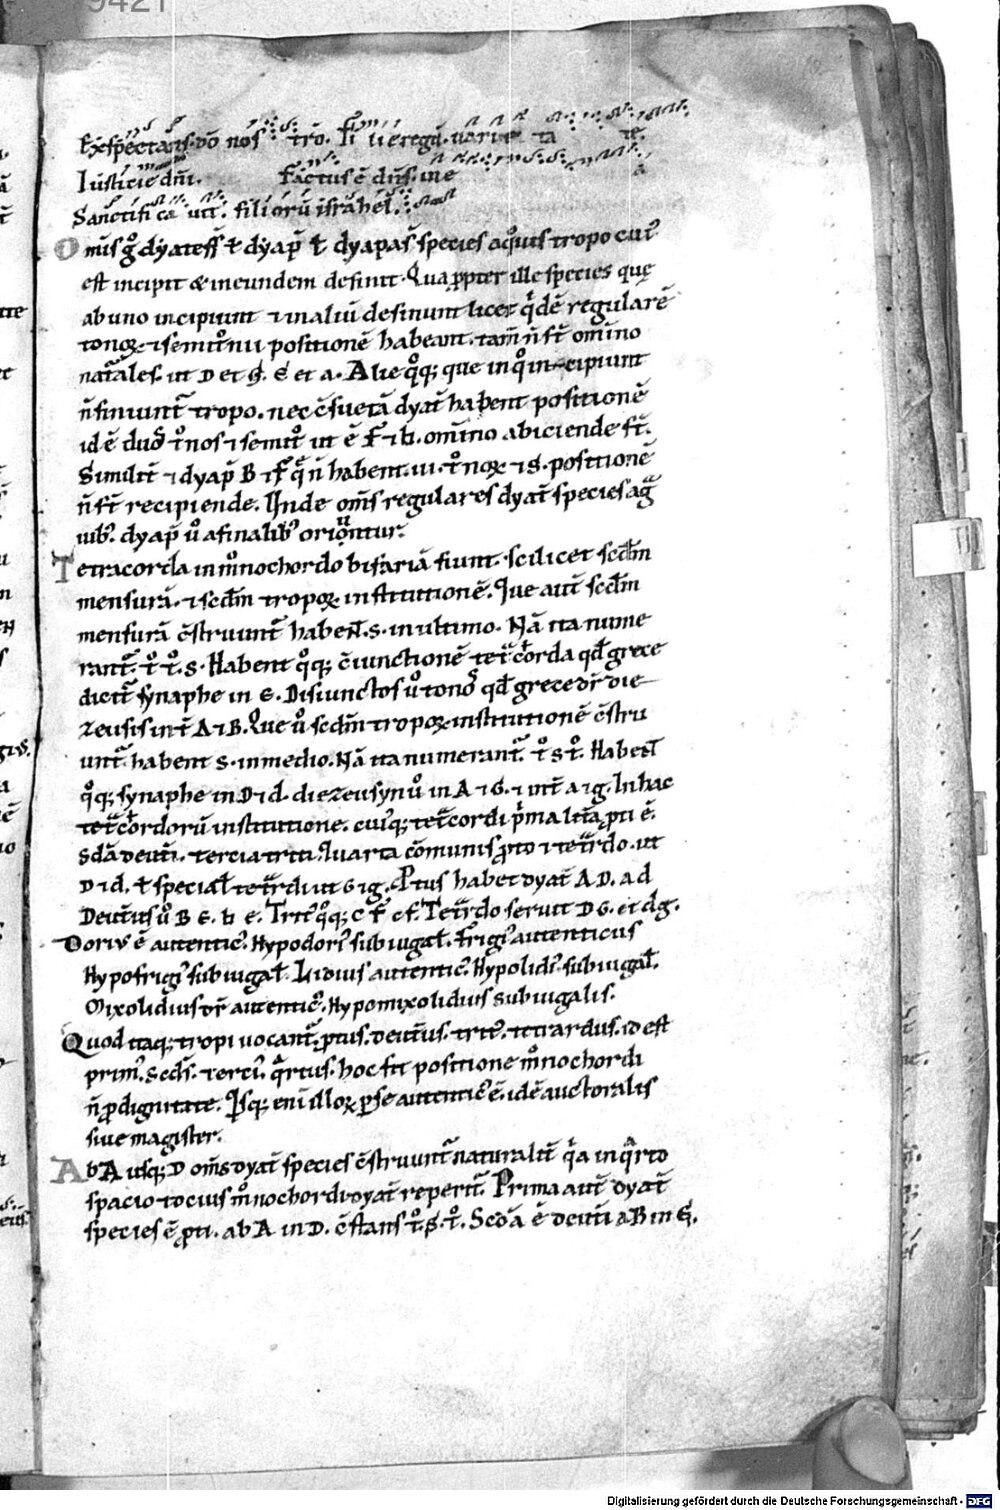 9421
Exspectans. do nos tro. Fi li e regū. varie ta te
Iusticie dn̄i. Factus ē dn̄s. in e a
Sanctifi ca vit. filiorū israhel.
Om̄is g̊ dyateſſ ł dyap̄ ł dyapas̄ species a q̊uis tropo cui᷒
est incipit & in eundem definit. Quapp̄ter ille species quę
ab uno incipiunt ⁊ in aliū definunt licet q̇dē regularē
tonoꝝ ⁊ semitonii positionē habeant. tam̄ n̄ sł om̄ino
nat̄ales. ut D et G. E et a. Alie q̊q; que in q̊ incipiunt
n̄ finiunt᷒ tropo. nec c̄suetā dyat̄ habent positionē
id ē duos t̊nos ⁊ semit̊ ut ē F ⁊ b. om̄ino abiciende st̄.
Similit̄ ⁊ dyap̄ B ⁊ F q̄ n̄ habent. iii. t̊noꝝ ⁊ S. positionē
n̄ st̄ recipiende. Unde om̄s regulares dyat̄ species a g̃
uib᷒. dyap̄ ů a finalib᷒ oriuntur.
Tetracorda in m̊nochordo bifariā fiunt. scilicet scd̄m
mensurā. ⁊ scd̄m tropoꝝ institutionē. Que aut̄ scd̄m
mensurā c̄struunt᷒ habent̄. S. in ultimo. Nā ita nume
rant᷒. t̊ t̊. S. Habent q̊q; c̄iunctionē tet̄corda qd̄ grece
dicit᷒ synaphe in E. Disiunctos ů tonos qd̄ grece dr̄ die
zeusis int̄ A ⁊ B. Que ů scd̄m tropoꝝ institutionē c̄stru
unt᷒. habent S. in medio. Nā ita numerant᷒. t̊ S t̊. Habent̄
q̊q; synaphe in D ⁊ d. diezeusyn ů in A ⁊ G. ⁊ int̄ a ⁊ g. In hac
tet̄cordorū institutione. cui᷒q; tet̄cordi p̄ma litt̄a p̄ti ē.
Sd̄a deut̄i. tercia triti. Quarta cōmunis p̄to ⁊ tet̄rdo. ut
D ⁊ d. ł special̄ tet̄rdi ut G ⁊ g. Ptus habet dyat̄ A D. a d
Deut̄us ů B E. b e. Trit᷒ q̊q; C F c f. Tet̄rdo seruit D G. et d g.
Dorius ē autentic᷒. Hypodori᷒ subiugal̄. Frigi᷒ autenticus
Hypofrigi᷒ subiugal̄. Lidius autentic᷒. Hypolidi᷒. subiugal̄.
Mixolidius dr̄ autentic᷒. Hypomixolidius subiugalis.
Quod itaq; tropi uocant᷒. p̄tus. deut̄us. trit᷒. tetrardus. id est
prim᷒. Scds̄. terci᷒. q̄rtus. hoc fit positione m̊nochordi
n̄ p̄ dignitate. Ipsq; eni illoꝝ p̄ se autentic᷒ ē. id ē auctoralis
siue magister.
Ab A usq; D om̄s dyat̄ species c̄struunt᷒ naturalit̄. q̇a in q̄rto
spacio tocius m̊nochordi dyat̄ reperit᷒. Prima aut̄ dyat̄
species ē p̄ti. ab A in D. c̄stans t̊. S. t̊. Scd̄a ē deut̄i a B in E.
Digitalisierung gefördert durch die Deutsche Forschungsgemeinschaft - DFG